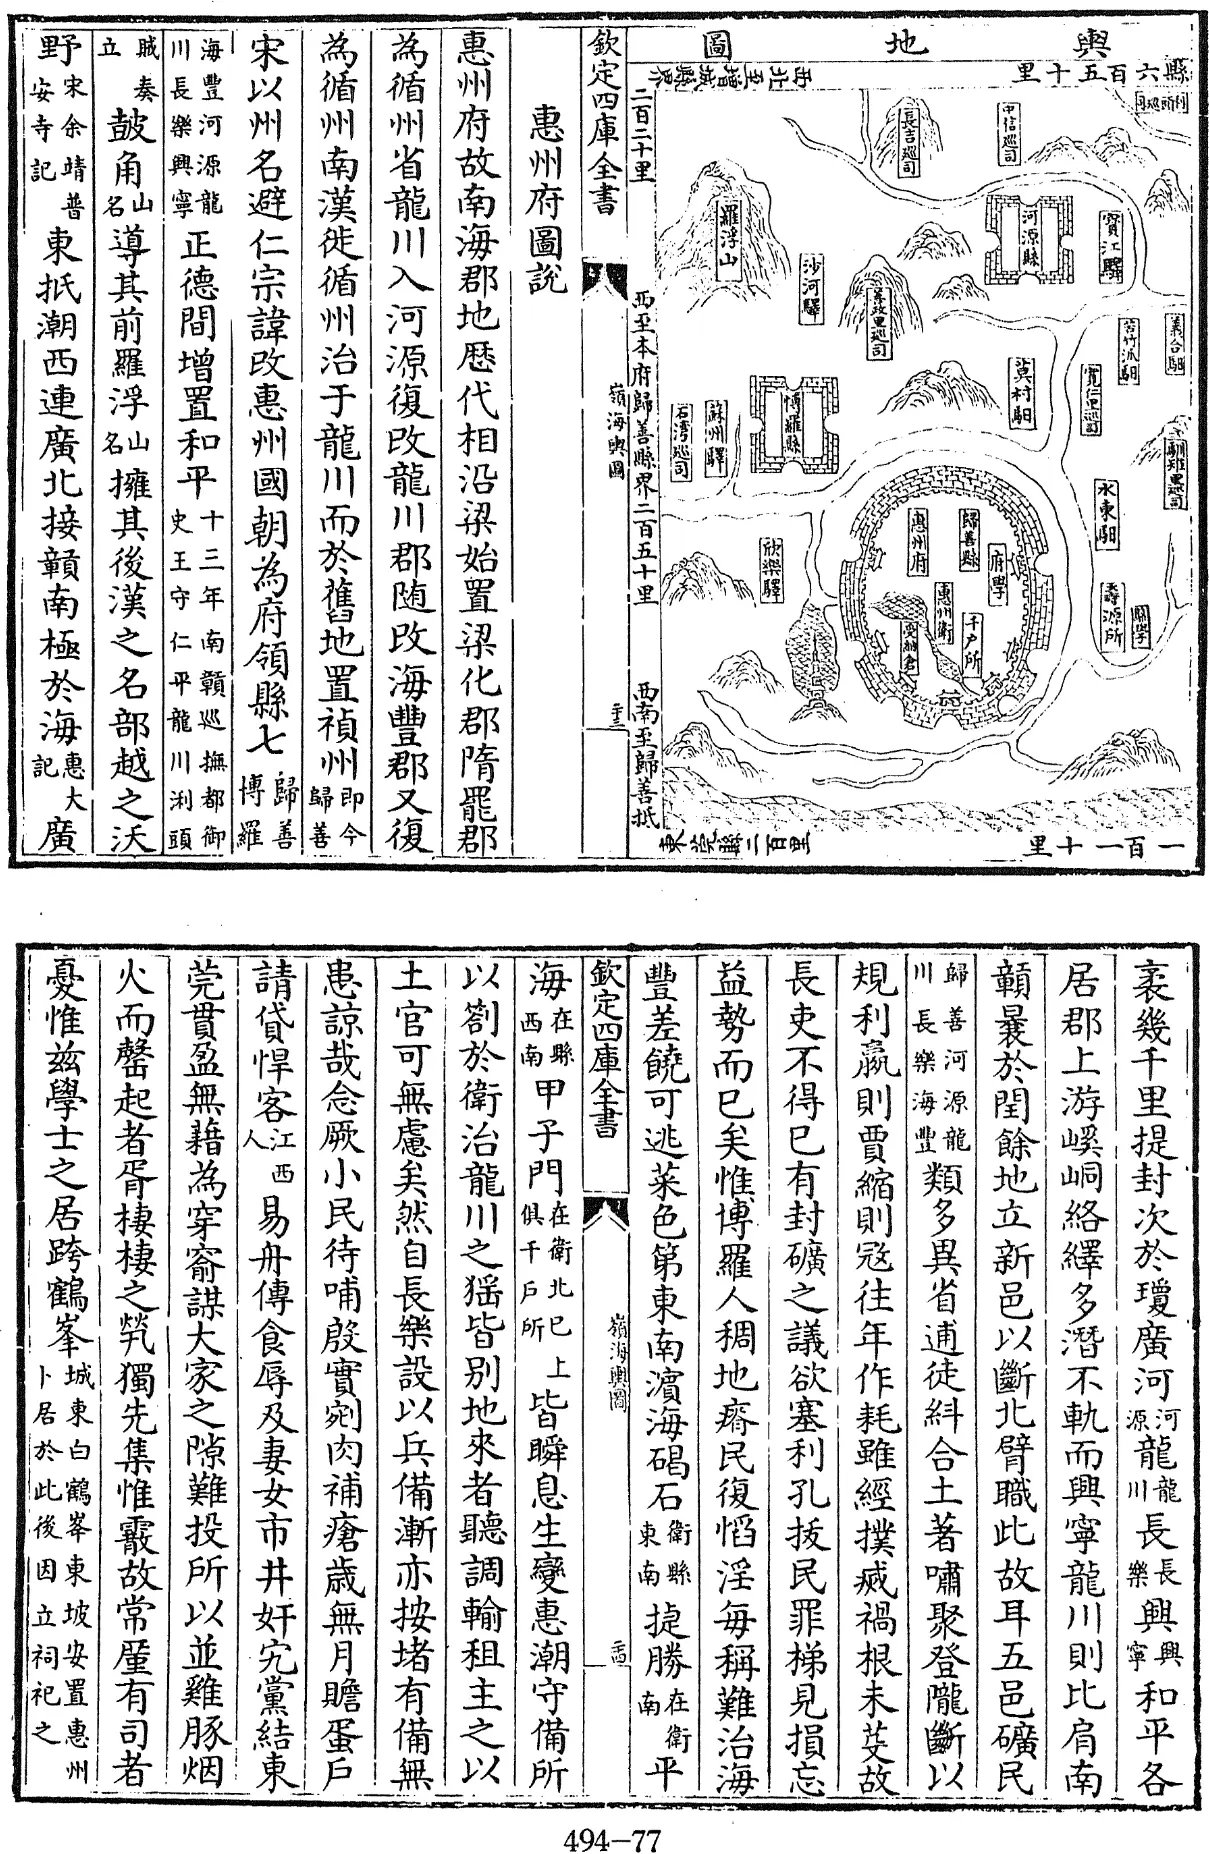 輿地圖
縣六百五十里
西北至增城縣界
二百二十里
西至本府歸善縣界二百五十里
西南至歸善抵
東莞縣二百里
一百一十里
中信巡司
長吉巡司
羅浮山
河源縣
寶江驛
沙河驛
善政里巡司
義合驲
苦竹派驲
寬仁里巡司
莫村驲
博羅縣
蘇州驛
石灣巡司
馴雉里巡司
水東驲
歸善縣
惠州府
府學
欣樂驛
惠州衛
千戶所
受納倉
壽源所
縣學
欽定四庫全書
嶺海輿圖
二十三
惠州府圖說
惠州府故南海郡地歷代相沿梁始置梁化郡隋罷郡
為循州省龍川入河源復改龍川郡随改海豐郡又復
為循州南漢徙循州治于龍川而於舊地置禎州即今歸善
宋以州名避仁宗諱改惠州國朝為府領縣七歸善博羅
海豐河源龍川長樂興寧正德間增置和平十三年南贛巡撫都御史王守仁平龍川浰頭
賊奏立皷角山名導其前羅浮山名擁其後漢之名部越之沃
野宋余靖普安寺記東抵潮西連廣北接贛南極於海惠大記廣
袤幾千里提封次於瓊廣河河源龍龍川長長樂興興寧和平各
居郡上游嵠峒絡繹多潛不軌而興寧龍川則比肩南
贛曩於閏餘地立新邑以斷北臂職此故耳五邑礦民
歸善河源龍川長樂海豐類多異省逋徒糾合土著嘯聚登隴斷以
規利贏則賈縮則宼往年作耗雖經撲烕禍根未芟故
長吏不得已有封礦之議欲塞利孔拔民罪梯見損忘
益勢而已矣惟博羅人稠地瘠民復慆淫每稱難治海
豐差饒可逃菜色第東南濵海碣石衛縣東南捷勝在衛南平
欽定四庫全書
嶺海輿圖
二十四
海在縣西南甲子門在衛北已上俱千戶所皆瞬息生變惠潮守備所
以劄於衛治龍川之猺皆别地來者聽調輸租主之以
土官可無慮矣然自長樂設以兵備漸亦按堵有備無
患諒哉念厥小民待哺殷實剜肉補瘡歳無月贍蛋戶
請貸悍客江西人易舟傳食辱及妻女市井奸宄黨結東
莞貫盈無藉為穿窬謀大家之隙難投所以並雞豚烟
火而罄起者胥棲棲之煢獨先集惟霰故常廑有司者
憂惟兹學士之居跨鶴峯城東白鶴峯東坡安置惠州卜居於此後因立祠祀之
494-77